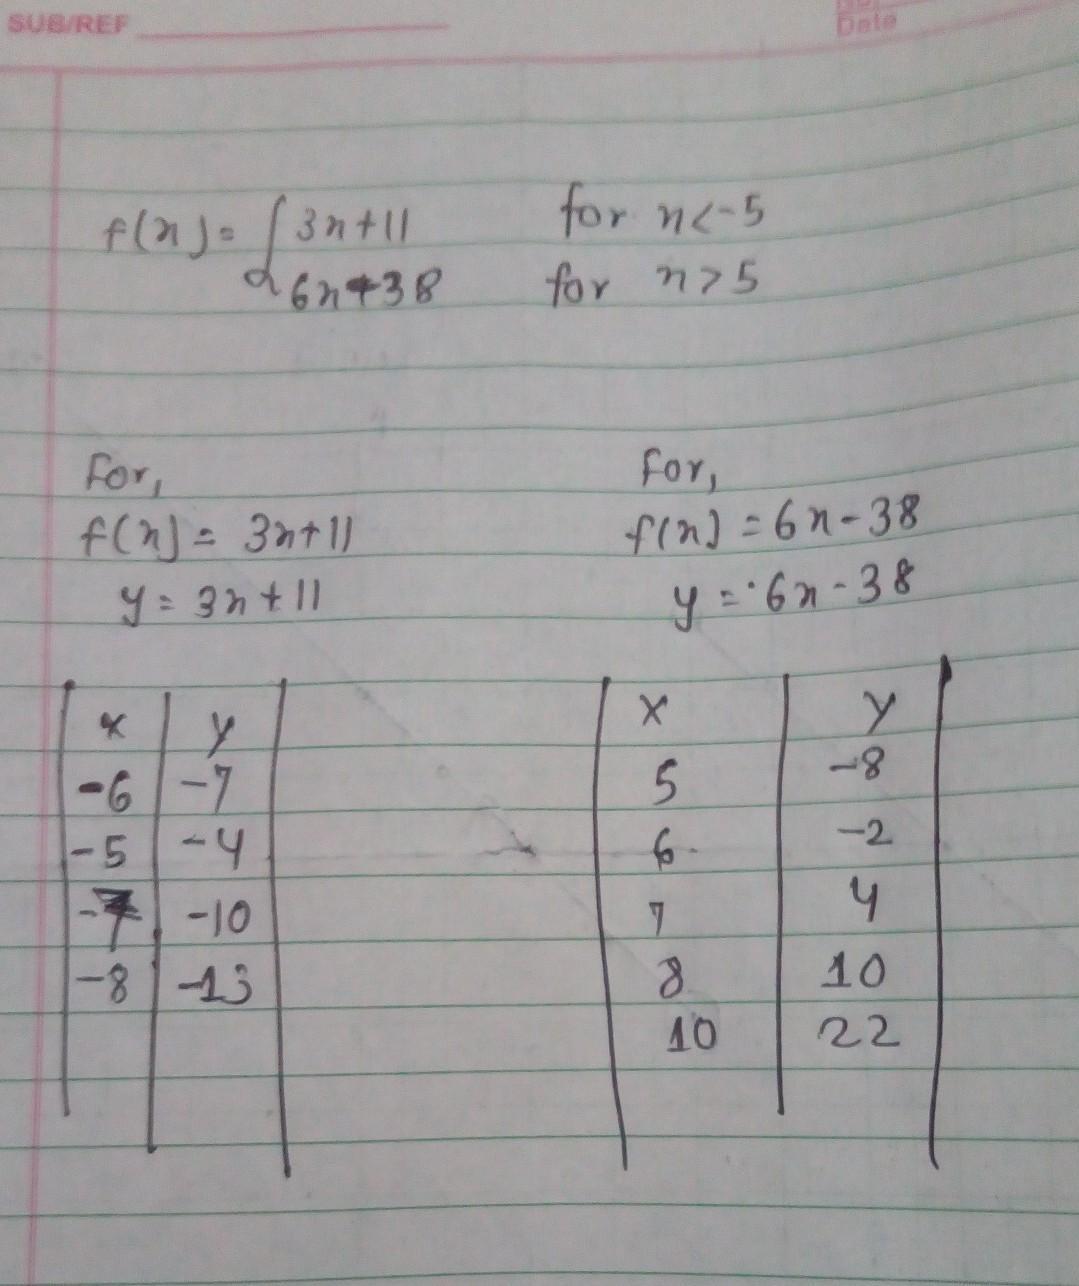 SUB/REF
Date
f(x) = { 3x+11 for x<-5
6x-38 for x>5
For,
f(x) = 3x+11
y = 3x+11
For,
f(x) = 6x-38
y = 6x-38
x y
-6 -7
-5 -4
-7 -10
-8 -13
x y
5 -8
6 -2
7 4
8 10
10 22